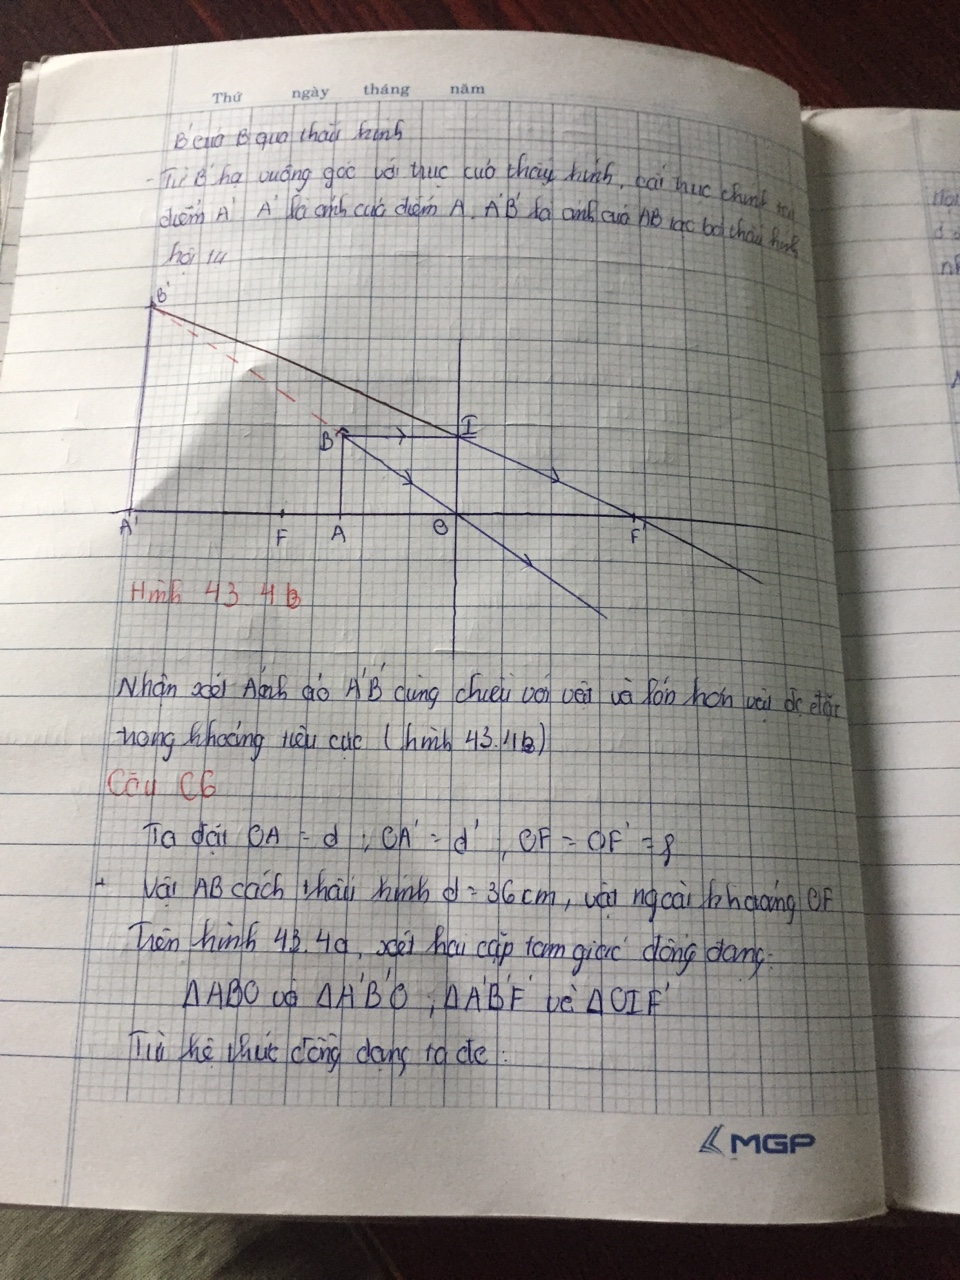 Thứ ngày tháng năm
B' của B qua thấu kính
- Từ B' hạ vuông góc với trục của thấu kính, cắt trục chính tại
điểm A'. A' là ảnh của điểm A. A'B' là ảnh của AB tạo bởi thấu kính
hội tụ
B'
B I
A' F A O F'
Hình 43 4B
Nhận xét Ảnh ảo A'B' cùng chiều với vật và lớn hơn vật đc đặt
trong khoảng tiêu cực (hình 43.4B)
Câu C6
Ta đặt OA = d ; OA' = d' ; OF = OF' = f
+ Vật AB cách thấu kính d = 36 cm, vật ngoài khoảng OF
Trên hình 43.4a, xét hai cặp tam giác đồng dạng:
ΔABO và ΔA'B'O ; ΔA'B'F' và ΔOIF'
Từ hệ thức đồng dạng ta đc :
MGP